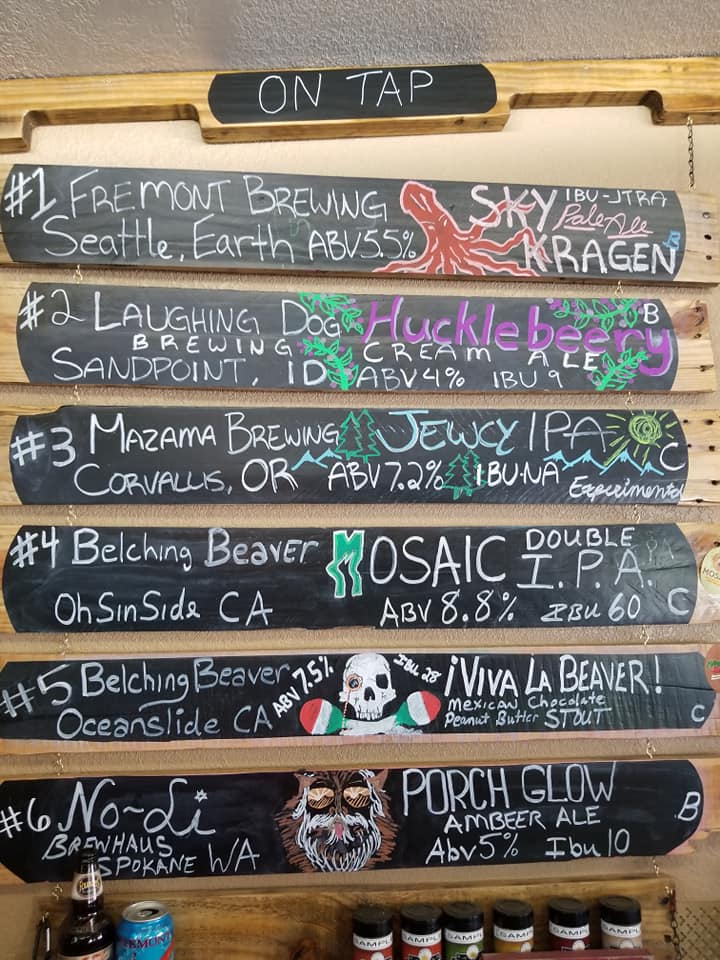 ON TAP
#1 FREMONT BREWING SKY IBU-JTRA
Pale Ale
Seattle, Earth ABV 5.5% KRAGEN B
#2 LAUGHING DOG Hucklebeery B
BREWING CREAM ALE
SANDPOINT, ID ABV 4% IBU 9
#3 MAZAMA BREWING JEWCY IPA
CORVALLIS, OR ABV 7.2% IBU-NA C
Experimental
#4 Belching Beaver MOSAIC DOUBLE
I.P.A.
OhSinSide CA ABV 8.8% IBU 60 C
#5 Belching Beaver ABV 7.5% IBU 28 ¡VIVA LA BEAVER!
Mexican Chocolate
Oceanslide CA Peanut Butter STOUT C
#6 No-Li PORCH GLOW
AMBEER ALE B
BREWHAUS
SPOKANE WA Abv 5% Ibu 10
SAMPL SAMPL SAMPL SAMPL SAMPL SAMPL